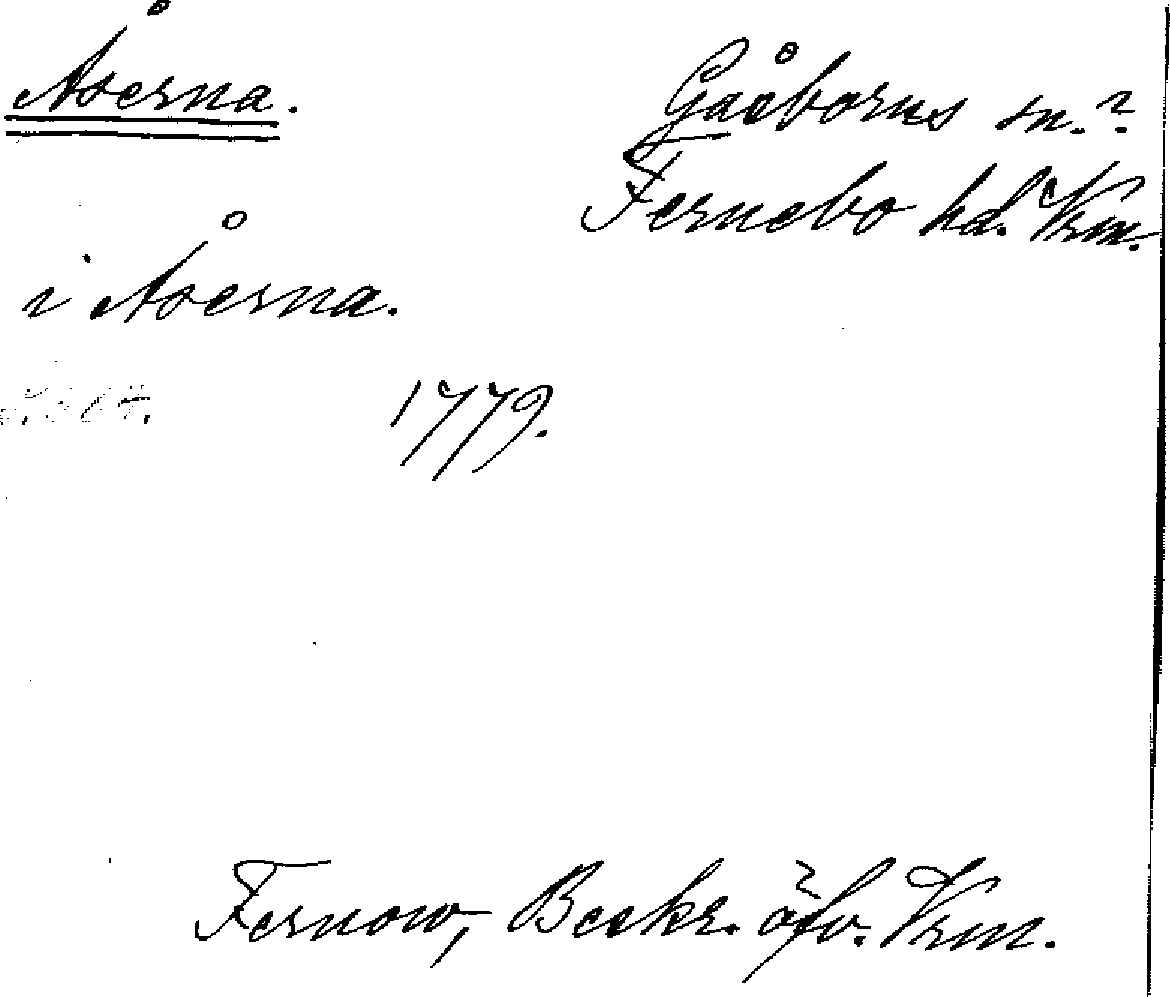 Åserna.
Gåsborns sn.?
Fernebo hd. Vrm.
i Åserna.
1779.
Fernow, Beskr. öfv. Vrm.